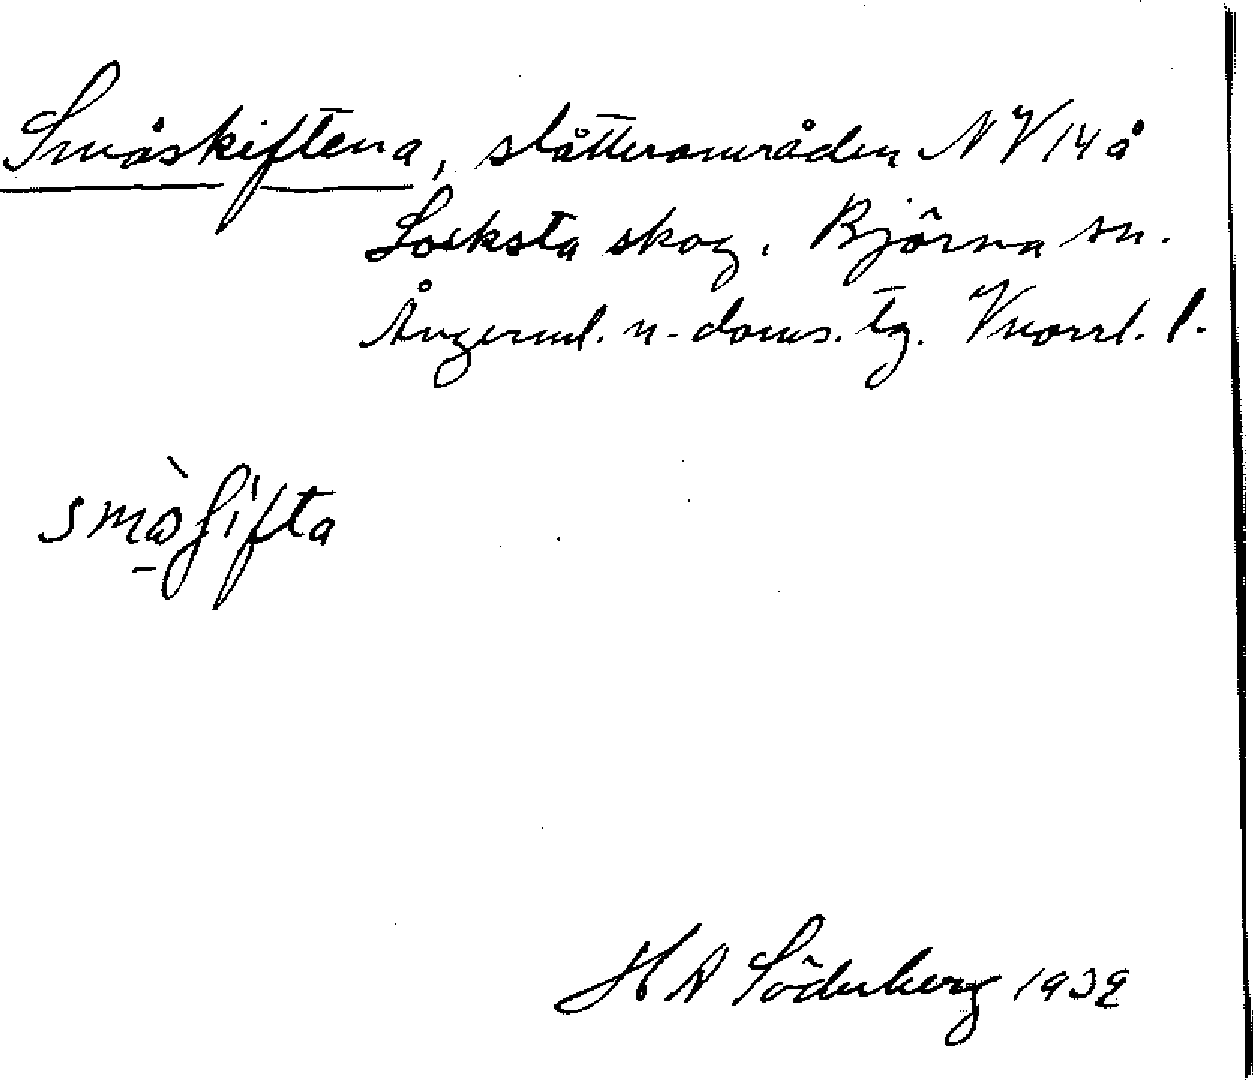 Småskiftena, slåtterområden NV 14 å
Locksta skog, Björna sn.
Ångerml. n. doms. tg. Vnorrl. l.
småʃifta
H A Söderberg 1932